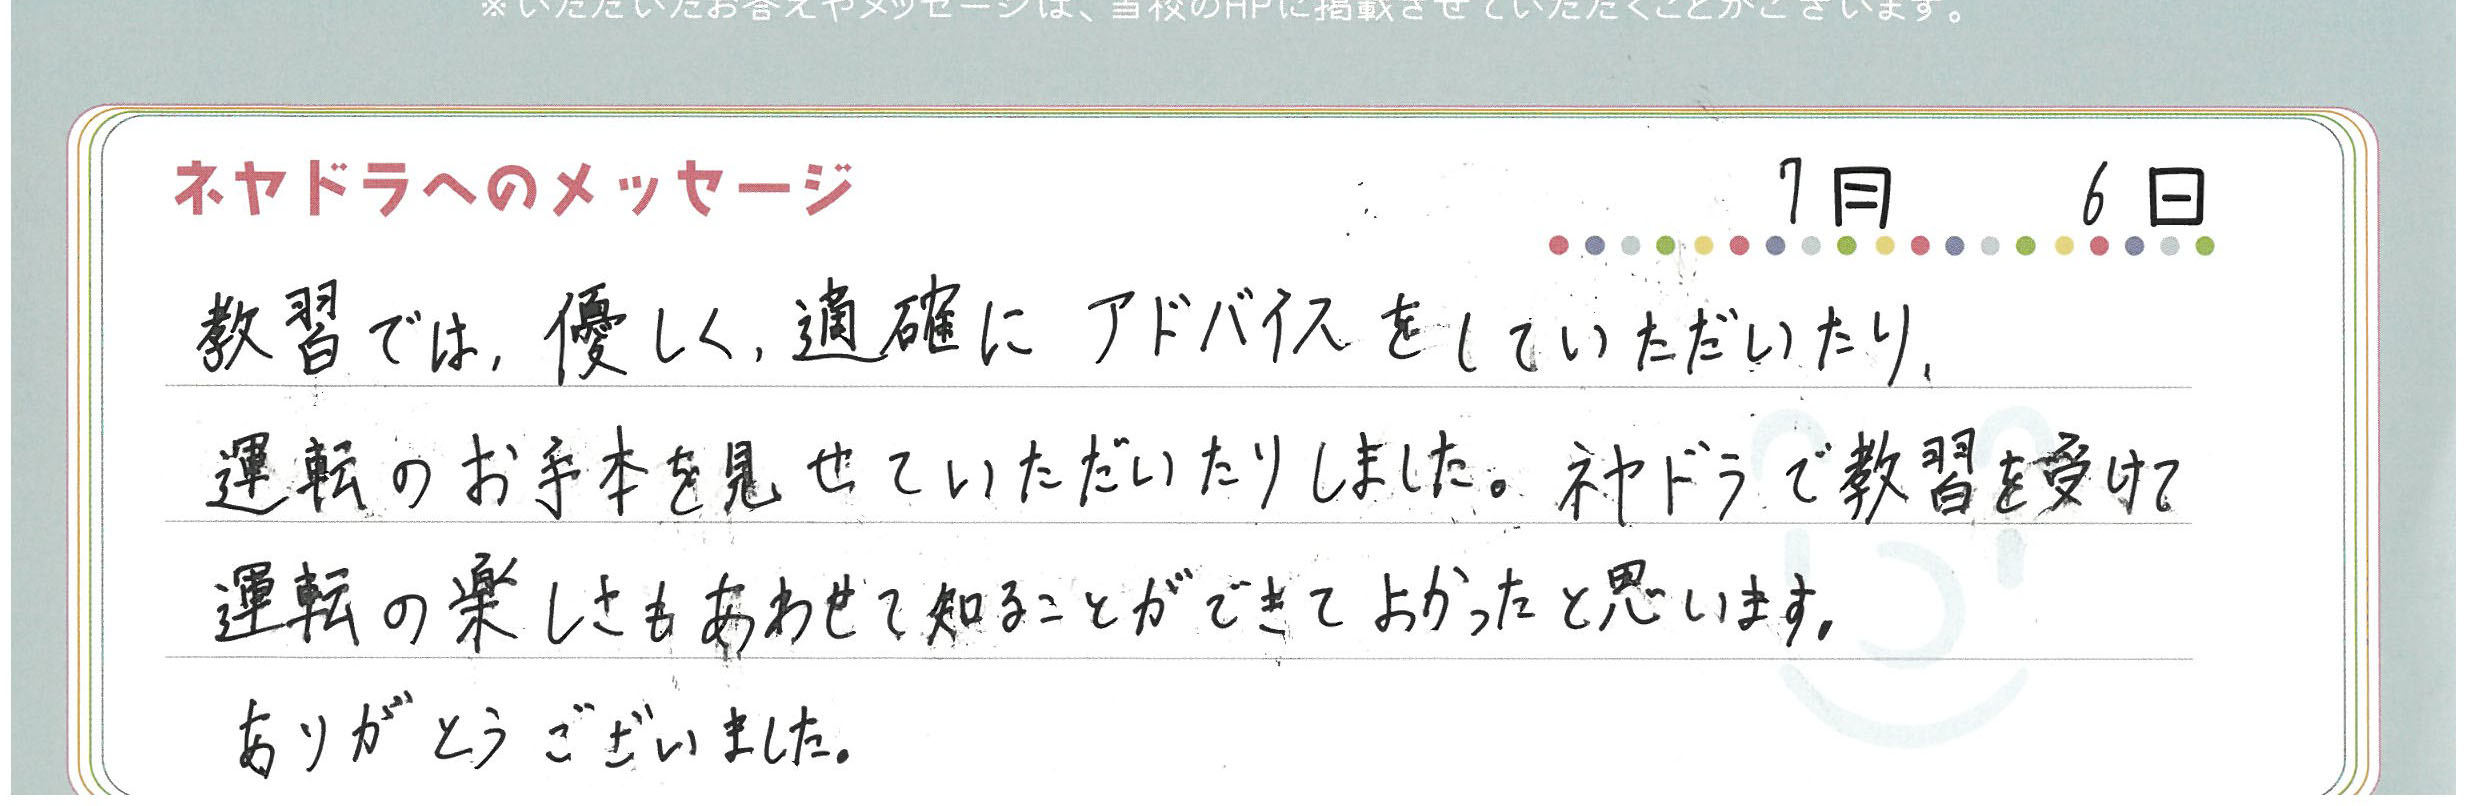 ※いただいたお答えやメッセージは、当校のHPに掲載させていただくことがございます。
ネヤドラへのメッセージ
7月 6日
教習では,優しく,適確にアドバイスをしていただいたり,
運転のお手本を見せていただいたりしました。ネヤドラで教習を受けて
運転の楽しさもあわせて知ることができてよかったと思います。
ありがとうございました。